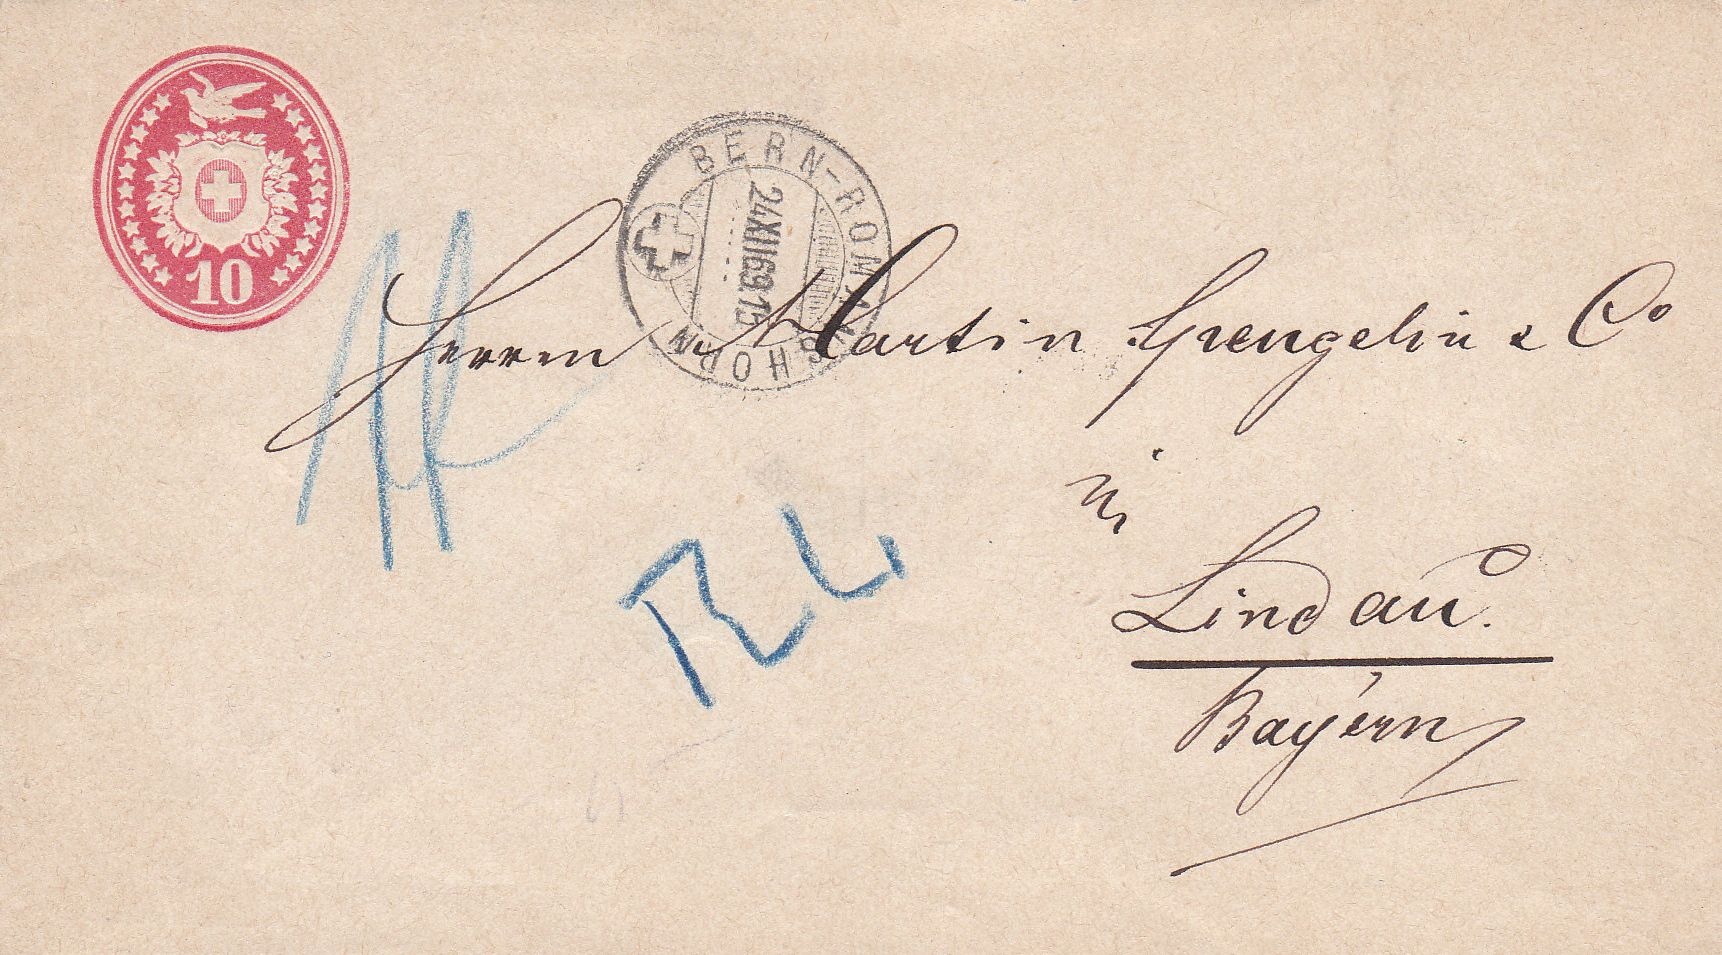 10
BERN-ROMANSHORN
24 XII 69 15
Herren Martin Spengelin & Co
in
Lindau.
Bayern